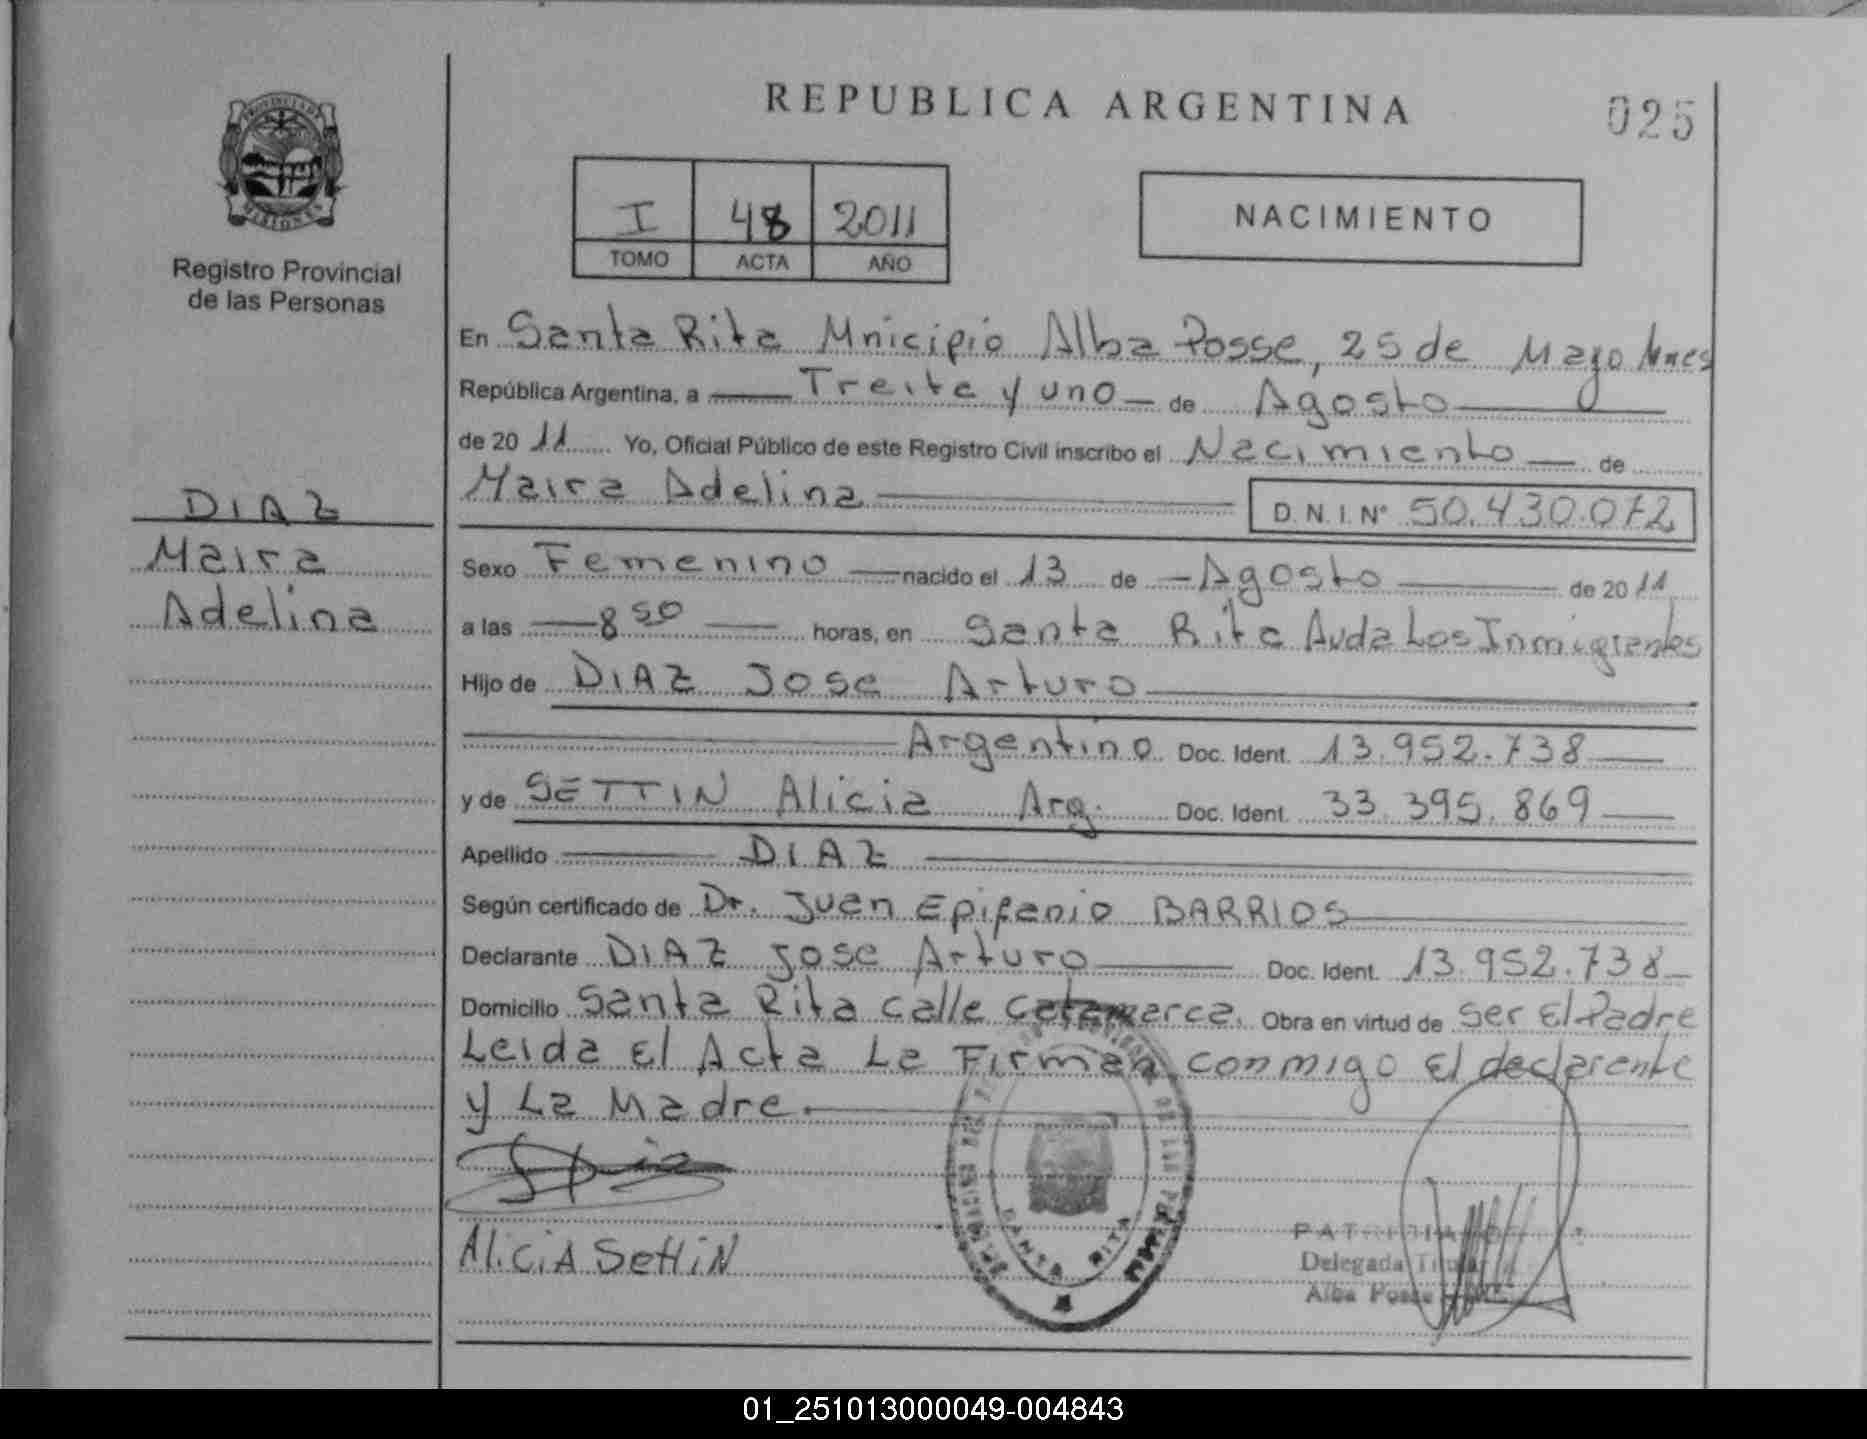 REPUBLICA ARGENTINA
025
PROVINCIA DE
MISIONES
Registro Provincial
de las Personas
I 48 2011
TOMO ACTA AÑO
NACIMIENTO
En Santa Rita Mnicipio Alba Posse, 25 de Mayo Mnes
República Argentina, a Treita y uno de Agosto
de 20 11 Yo, Oficial Público de este Registro Civil inscribo el Nacimiento de
Maira Adelina D.N.I.N° 50.430.072
DIAZ
Maira
Adelina
Sexo Femenino nacido el 13 de Agosto de 20 11
a las 8 50 horas, en Santa Rita Avda Los Inmigrantes
Hijo de DIAZ Jose Arturo
Argentino Doc. Ident. 13.952.738
y de SETTIN Alicia Arg. Doc. Ident. 33.395.869
Apellido DIAZ
Según certificado de Dr. Juan Epifanio BARRIOS
Declarante DIAZ Jose Arturo Doc. Ident. 13.952.738
Domicilio Santa Rita calle Catamarca. Obra en virtud de Ser El Padre
Leida El Acta La Firman conmigo El declarante
y La Madre.
Alicia Settin
SANTA RITA
Delegada Titular
Alba Posse
01_251013000049-004843